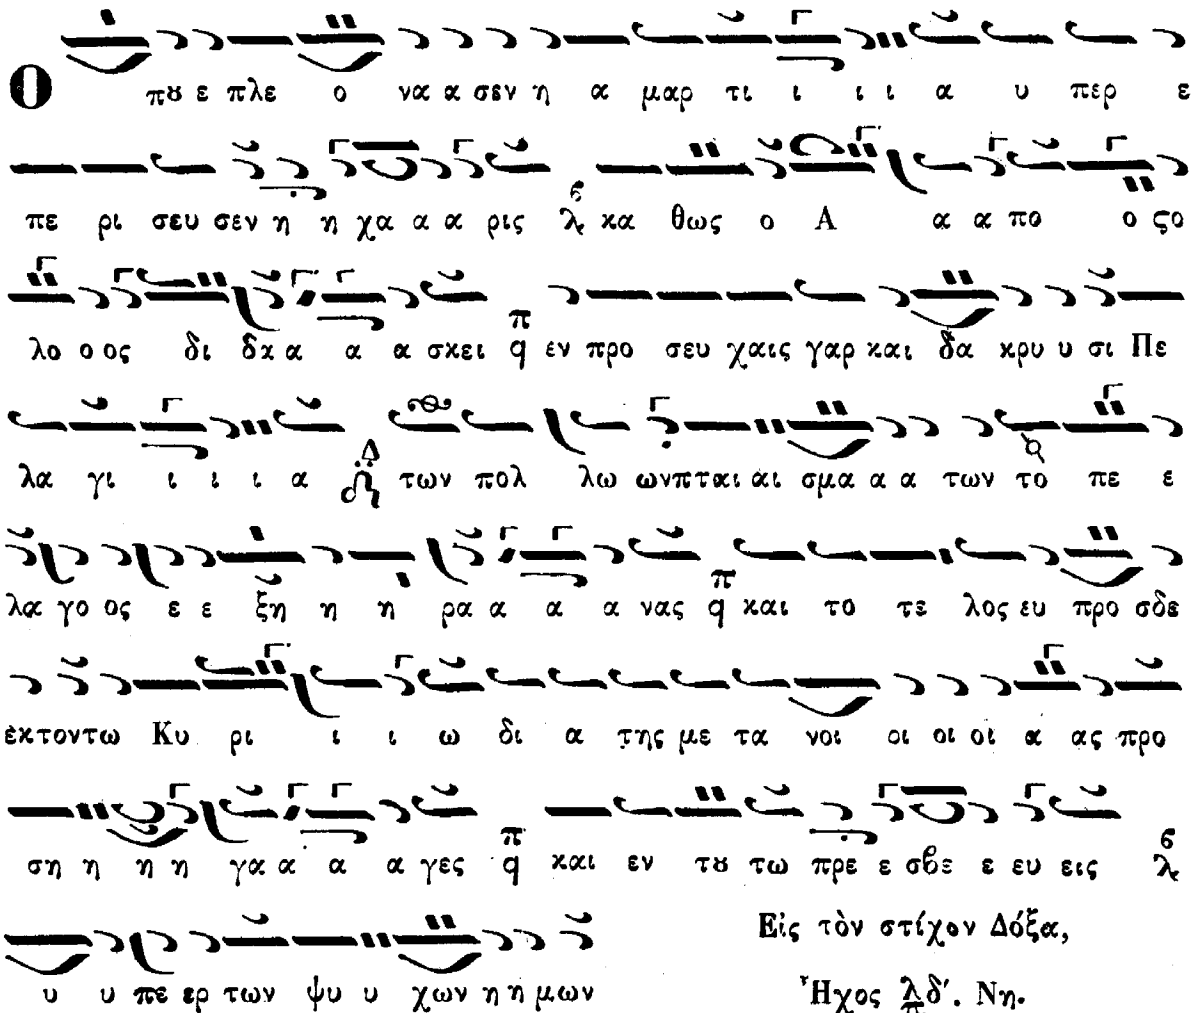 Ο πȣ ε πλε ο να α σεν η α μαρ τι ι ι ι α υ περ ε
πε ρι σευ σεν η η χα α α ρις κα θως ο Α α α πο ο ςο
λο ο ος δι δκα α α σκει π q εν προ σευ χαις γαρ και δα κρυ υ σι Πε
λα γι ι ι ι α Δ των πολ λω ων πται αι σμα α α των το πε ε
λα γο ος ε ε ξη η η ρα α α α νας π q και το τε λος ευ προ σδε
εκτον τω Κυ ρι ι ι ω δι α της με τα νοι οι οι οι α ας προ
ση η η η γα α α α γες π q και εν τȣ τω πρε ε σβε ε ευ εις
υ υ πε ερ των ψυ υ χων η η μων Εἰς τὸν στίχον Δόξα,
Ἦχος λ π δ΄. Νη.